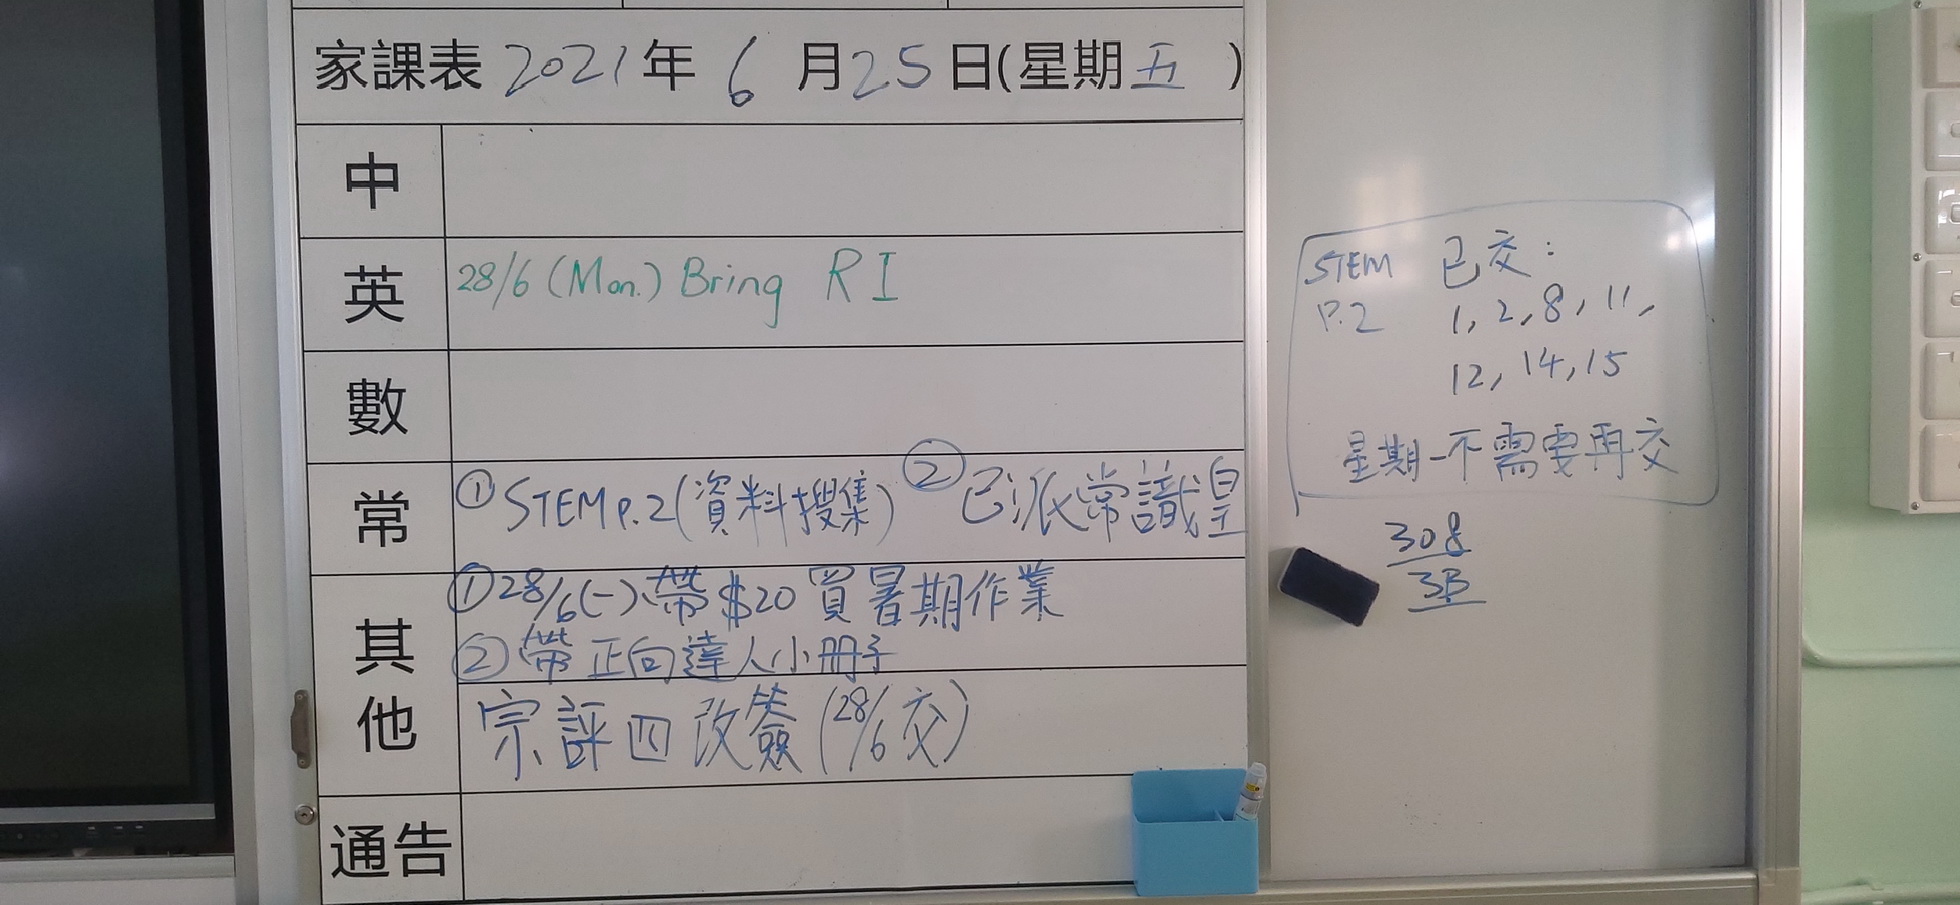 家課表 2021年 6 月 25 日(星期五 )
中
英 28/6 (Mon.) Bring RI
數
常 ① STEM P.2 (資料搜集) ② 已派常識皇
其他 ① 28/6(一)帶$20買暑期作業
② 帶正向達人小冊子
宗評四改簽 (28/6交)
通告
STEM 已交:
P.2 1, 2, 8, 11,
12, 14, 15
星期一不需要再交
308
3B